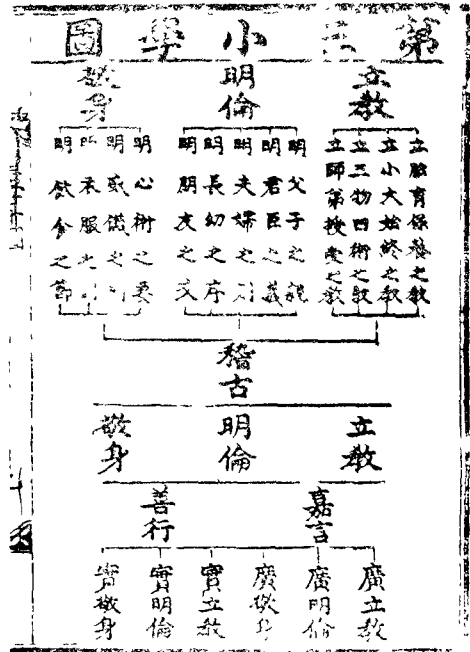 第三小學圖
立教
明倫
敬身
立胎育保養之教
立小大始終之教
立三物四術之教
立師弟授受之教
明父子之親
明君臣之義
明夫婦之別
明長幼之序
明朋友之交
明心術之要
明威儀之則
明衣服之制
明飲食之節
稽古
立教
明倫
敬身
嘉言
善行
廣立教
廣明倫
廣敬身
實立教
實明倫
實敬身